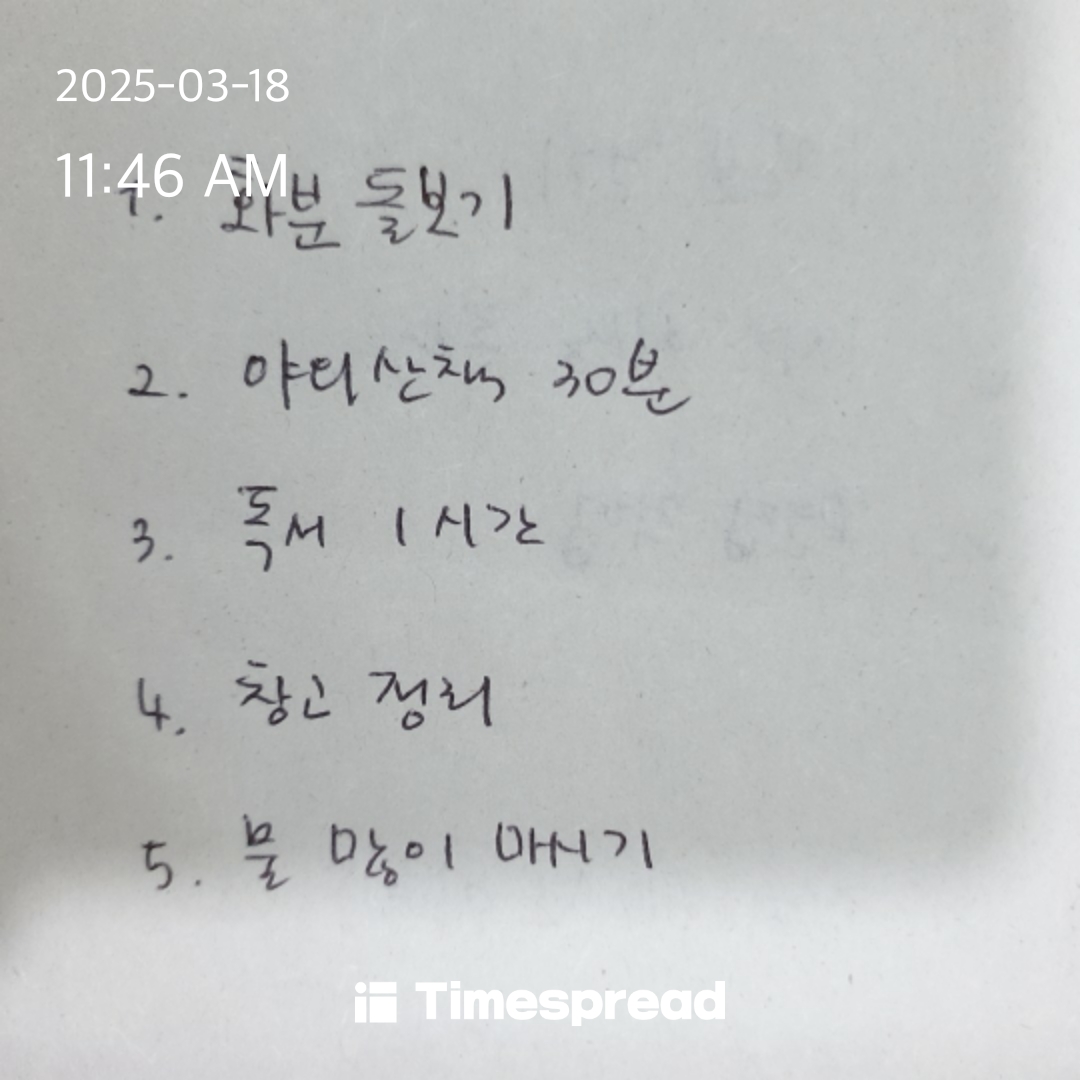 2025-03-18
11:46 AM
1. 화분 돌보기
2. 야외산책 30분
3. 독서 1시간
4. 창고 정리
5. 물 많이 마시기
Timespread